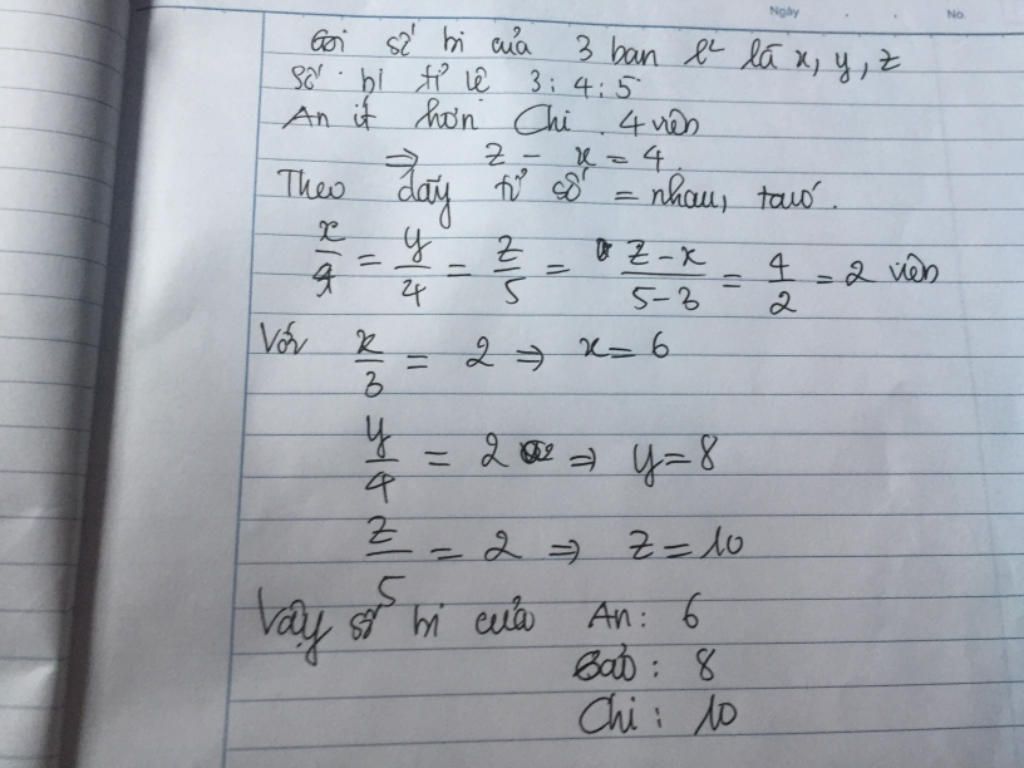 Ngày . . No.
Gọi số bi của 3 bạn l² là x, y, z
Số bi tỉ lệ 3 : 4 : 5
An ít hơn Chi 4 viên
⇒ z - x = 4
Theo dãy tỉ số = nhau, ta có.
x/3 = y/4 = z/5 = z-x/5-3 = 4/2 = 2 viên
Với x/3 = 2 ⇒ x = 6
y/4 = 2 ⇒ y = 8
z/5 = 2 ⇒ z = 10
Vậy số bi của An : 6
Bảo : 8
Chi : 10